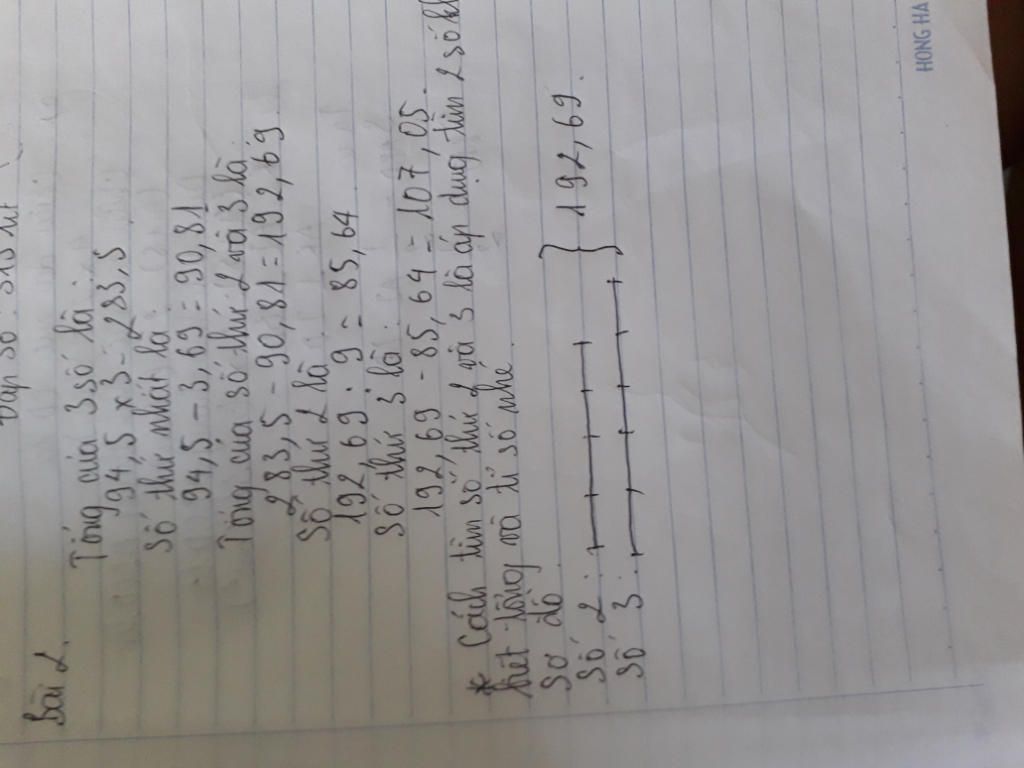 Đáp số: 515
Bài 2.
Tổng của 3 số là:
94,5 x 3 = 283,5
Số thứ nhất là:
94,5 - 3,69 = 90,81
Tổng của số thứ 2 và 3 là
283,5 - 90,81 = 192,69
Số thứ 2 là:
192,69 : 9 = 85,64
Số thứ 3 là:
192,69 - 85,64 = 107,05.
* Cách tìm số thứ 2 và 3 là áp dụng tìm 2 số khi
biết tổng và tỉ số nhé
Sơ đồ
Số 2:
Số 3:
192,69.
HONG HA